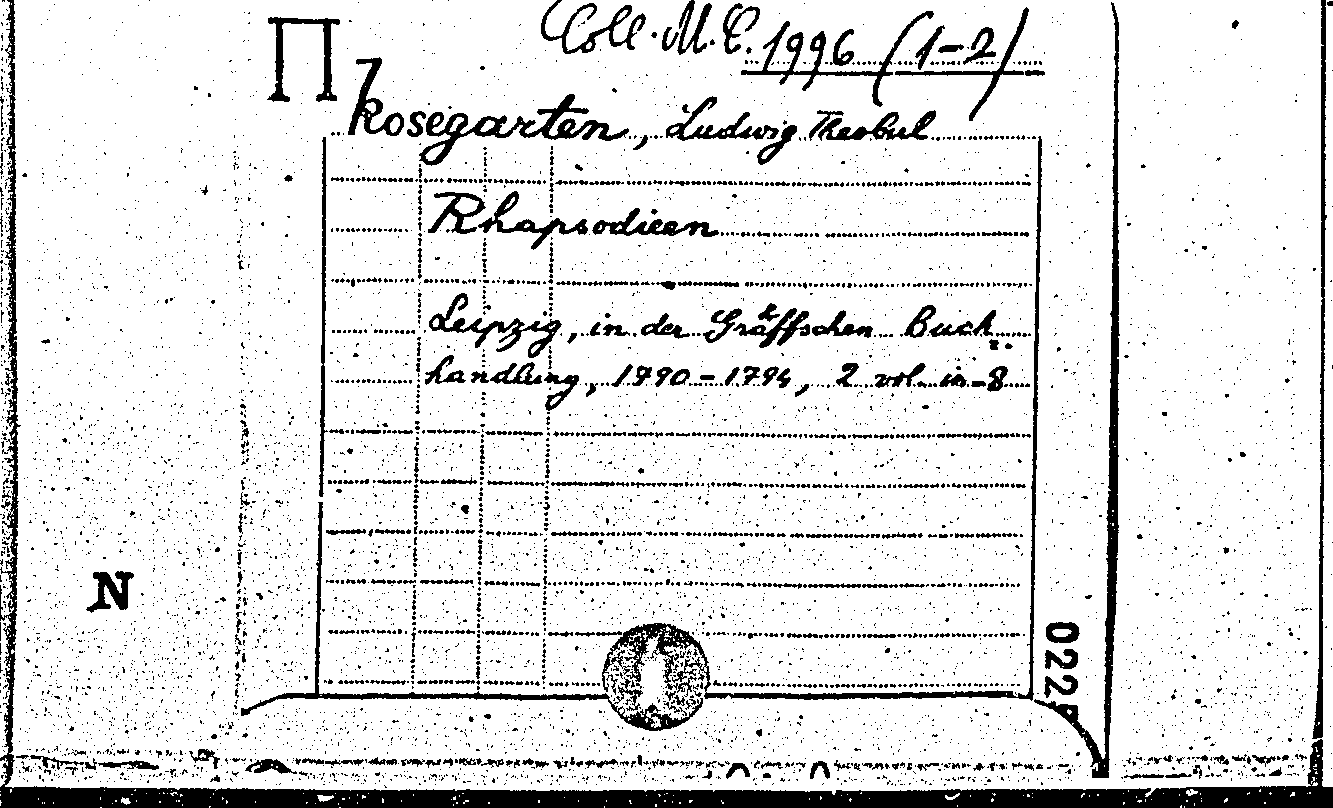 Π7
Coll. M. E. 1996 (1-2)
Kosegarten, Ludwig Theobul
Rhapsodieen
Leipzig, in der Gräffschen Buch
handlung, 1790-1794, 2 vol. in-8
N